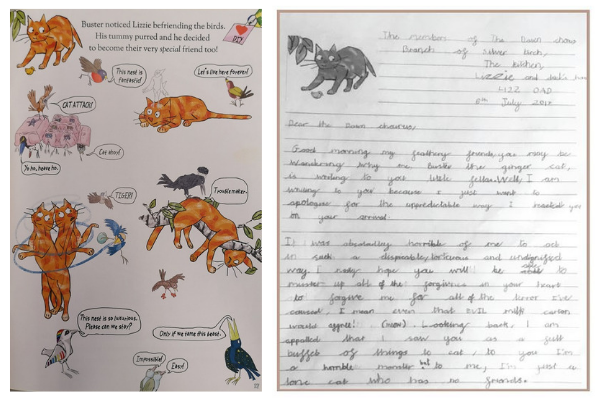 Buster noticed Lizzie befriending the birds.
His tummy purred and he decided
to become their very special friend too!
DIY
This nest is fantastic!
Let's live here forever!
CAT ATTACK!
Cat ahoy!
Yo ho, heave ho.
TIGER!
Troublemaker.
This nest is so luxurious.
Please can we stay?
Only if we tame this beast.
Impossible!
Easy!
The members of the Dawn chorus
Branch of Silver Birch,
The kitchen,
Lizzie and Jack's
L122 OAD
8th July 2019
Dear the Dawn chorus,
Good morning my feathery friends, you may be
wondering why me Buster the ginger cat,
is writing to you little fellas. Well, I am
writing to you because I just want to
apologise for the unpredictable way I you
on your arrival.
It was absolutely horrible of me to act
in such a despicable, torturous and undignified
way. I really hope you will be able to
muster up all of the forgivness in your heart
to forgive me for all of the terror I've
caused, I mean even that EVIL milk carton
would agree! (MEOW). Looking back, I am
appalled that I saw you as a full
buffet of things to eat, to you I'm
a horrible monster but to me, I'm just a
lone cat who has no friends.